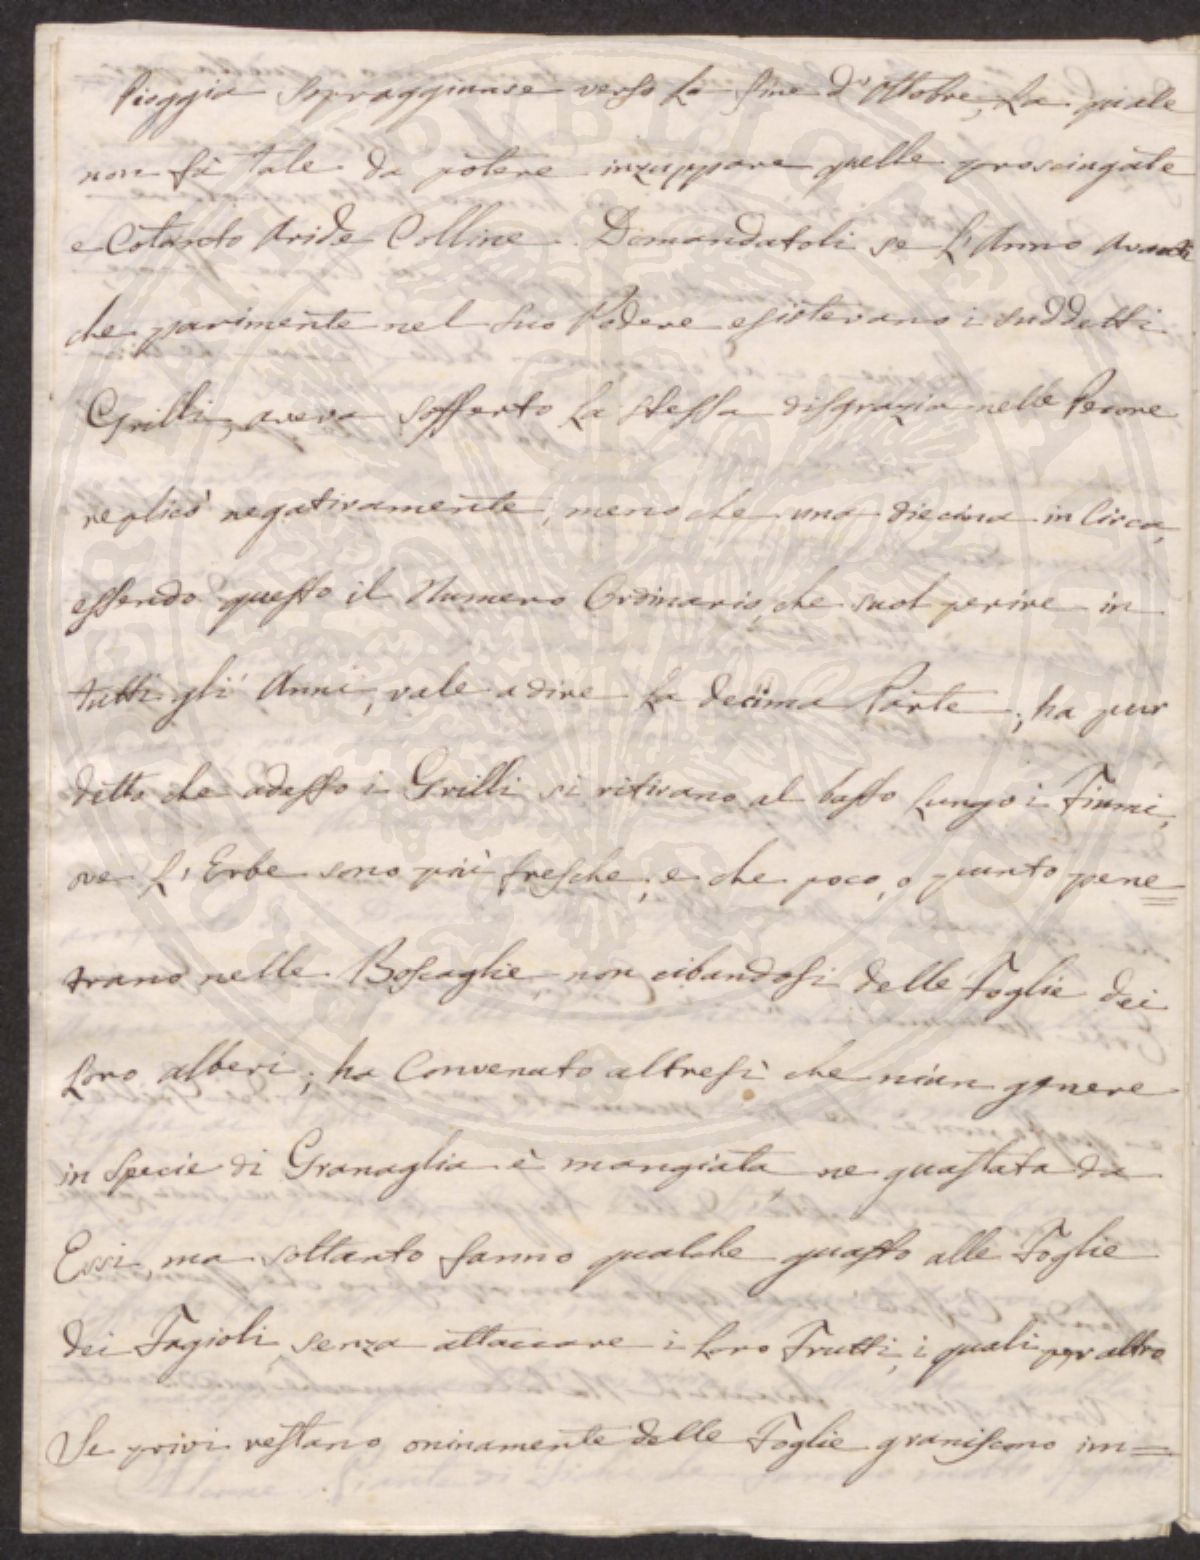 Pioggia sopraggiunse verso la fine d'Ottobre, la quale
non fù tale da potere inzuppare quelle prosciugate
e Cotanto Aride Colline. Domandatoli se l'Anno Avanti
che parimente nel suo Podere esistevano i suddetti
Grilli, aveva sofferto la stessa disgrazia nelle Pecore
replicò negativamente, meno che una diecina in Circa,
essendo questo il Numero Ordinario, che suol perire in
tutti gli Anni, vale a dire la decima Parte; ha pur
detto che adesso i Grilli si ritirano al basso lungo i Fiumi,
ove l'Erbe sono più fresche, e che poco, o punto pene=
trano nelle Boscaglie non cibandosi delle Foglie dei
loro alberi; ha Convenuto altresì che niun genere
in specie di Granaglia è mangiata, ne guastata da
Essi, ma soltanto fanno qualche guasto alle Foglie
dei Fagioli senza attaccare i loro Frutti, i quali per altro
Se privi restano oninamente delle Foglie graniscono im=